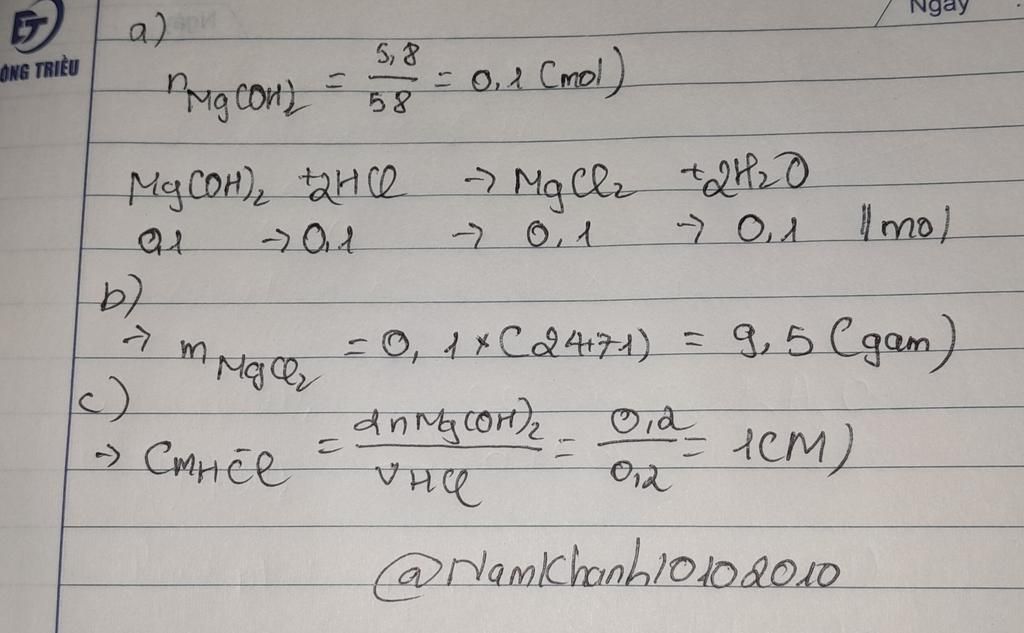 ĐÔNG TRIỀU
Ngày
a)
nMg(OH)2 = 5,8/58 = 0,1 (mol)
Mg(OH)2 +2HCl → MgCl2 +2H2O
0,1 → 0,1 → 0,1 → 0,1 //mol
b)
→ mMgCl2 = 0,1 × (24+71) = 9,5 (gam)
c)
→ CMHCl = 2nMg(OH)2/VHCl = 0,2/0,2 = 1(M)
@NamKhanh10102010